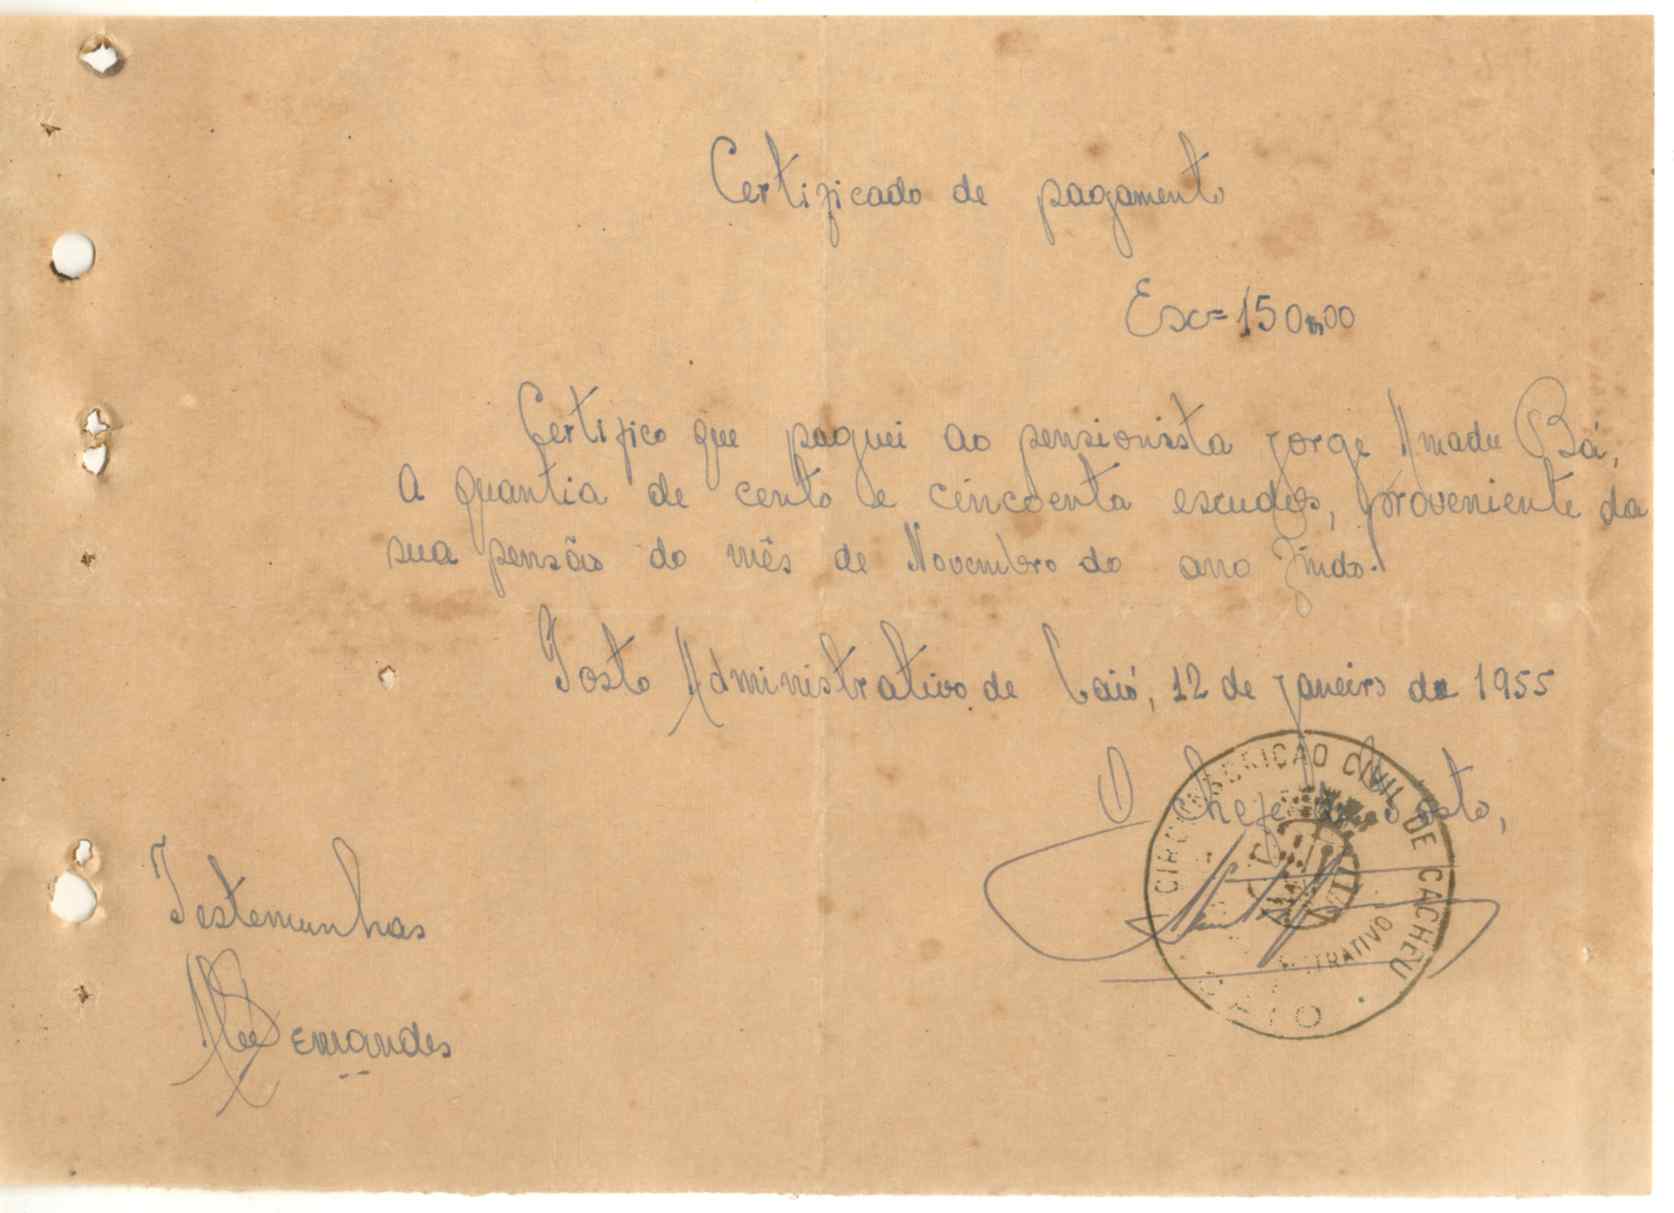 Certificado de pagamento
Esc= 150$00
Certifico que paguei ao pensionista Jorge Amadu Bá,
a quantia de cento e cincoenta escudos, proveniente da
sua pensão do mês de Novembro do ano findo.
Posto Administrativo de Caió, 12 de janeiro de 1955
O Chefe do Posto,
CIRCUNSCRIÇÃO CIVIL DE CACHEU
CAIO
Testemunhas